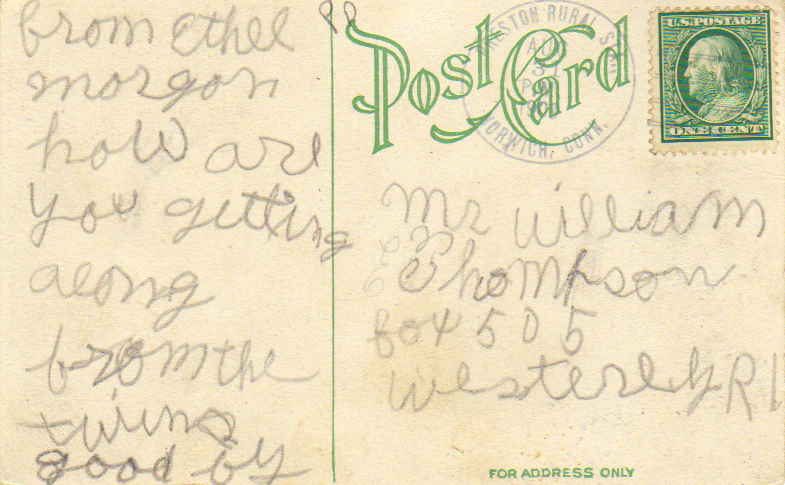 from Ethel
morgan
how are
you getting
along
from the
twins
good by
Post Card
RURAL
AUG
31
NORWICH, CONN.
U.S. POSTAGE
ONE CENT
Mr William
Thompson
box 505
Westerly R I
FOR ADDRESS ONLY